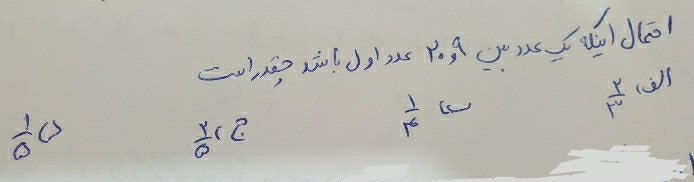 احتمال اینکه یک عدد بین ۹ و ۲۰ عدد اول باشد چقدر است
الف) ۲/۳ ب) ۱/۴ ج) ۲/۵ د) ۱/۵